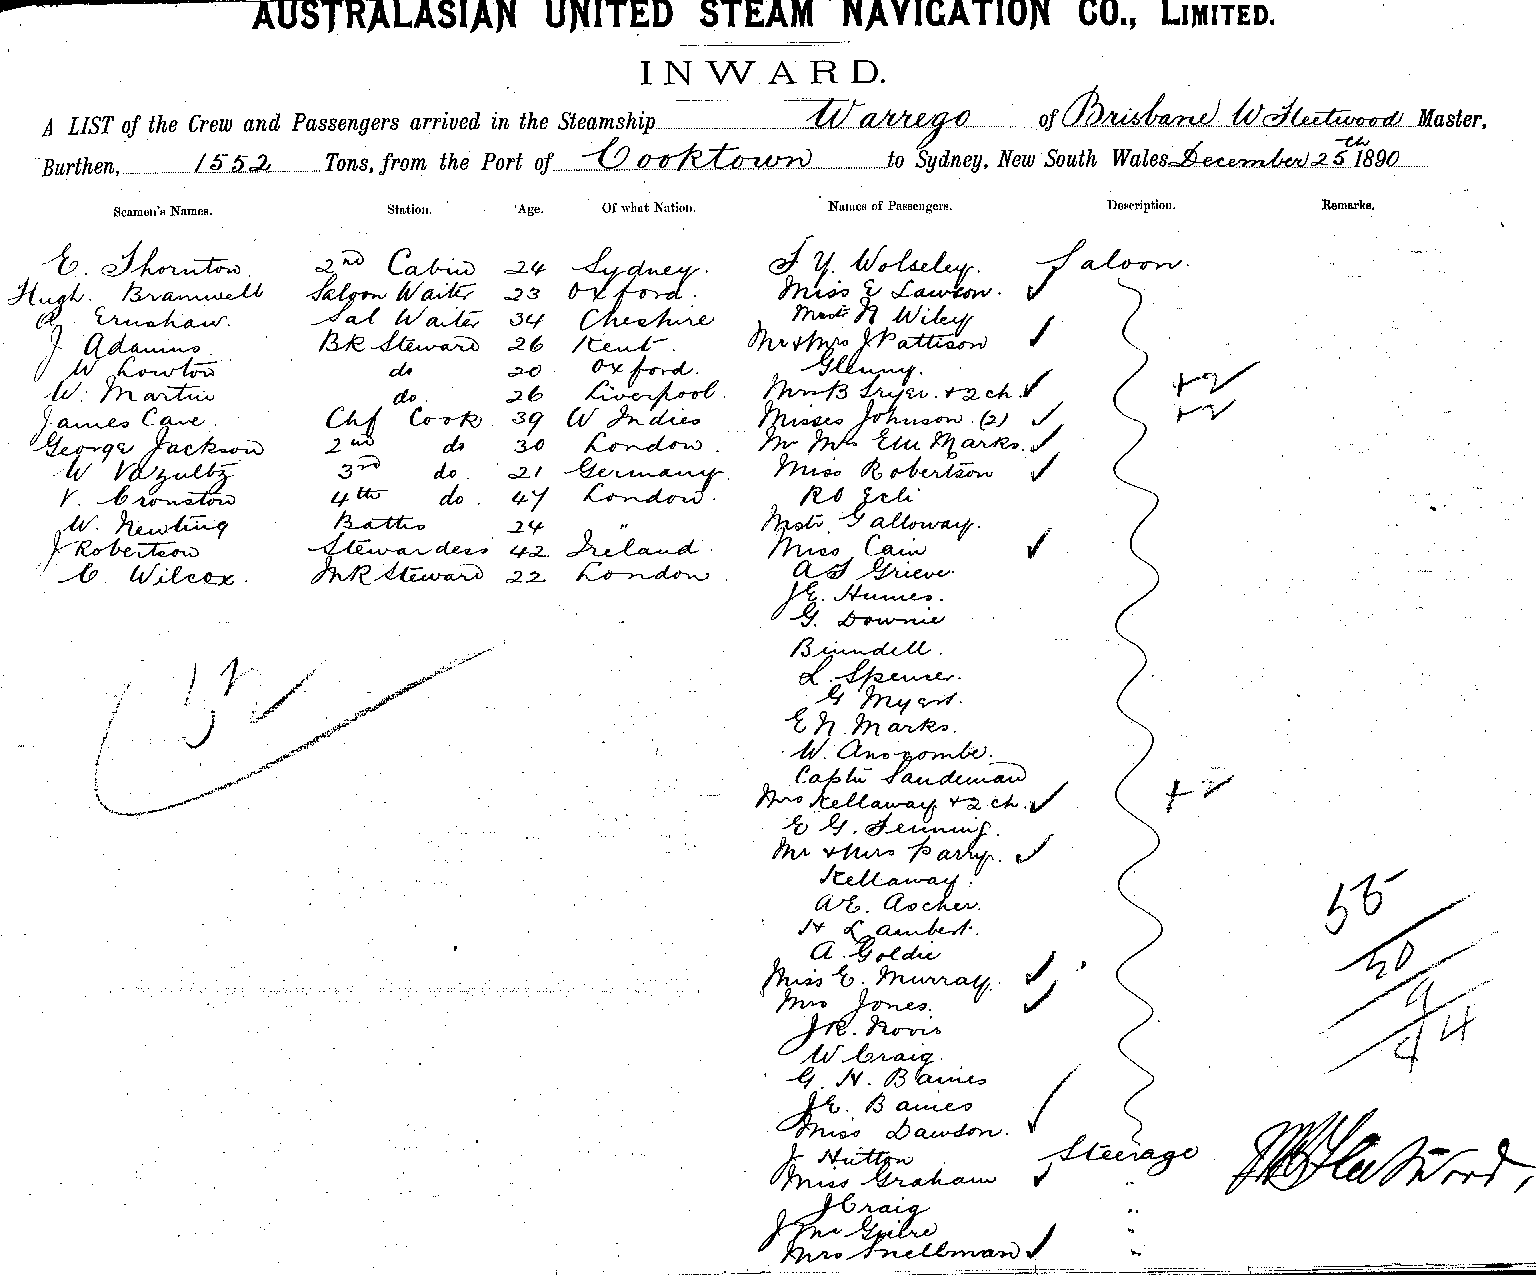 AUSTRALASIAN UNITED STEAM NAVIGATION CO., LIMITED.
INWARD.
A LIST of the Crew and Passengers arrived in the Steamship Warrego of Brisbane W Fleetwood Master,
Burthen, 1552 Tons, from the Port of Cooktown to Sydney, New South Wales December 25th 1890
Seamen's Names. Station. Age. Of what Nation. Names of Passengers. Description. Remarks.
E. Thornton 2nd Cabin 24 Sydney. F Y. Wolseley. Saloon.
Hugh. Bramwell Saloon Waiter 23 Oxford. Miss E Lawson.
Ernshaw. Sal Waiter 34 Cheshire N Wiley
J Adamms BR Steward 26 Kent. Mr & Mrs J Pattison
W Lowton do 20 Oxford. Glenny.
W. Martin do. 26 Liverpool. Mrs B Fryer. + 2 ch. +2
James Cave. Chf Cook 39 W Indies Misses Johnson (2) +2
George Jackson 2nd do 30 London. Mr Mrs Marks.
W 3rd do. 21 Germany. Miss Robertson
V. Cronston 4th do. 47 London. R O
W. Newling 24 " Mstr Galloway.
J Robertson Stewardess 42 Ireland Miss Cain
C. Wilcox. MR Steward 22 London A S Grieve.
J E. Humes.
G. Downie
Brundell.
L. Spenser.
G Myers.
E N. Marks.
W. Anscombe.
Captn Sandeman
Mrs Kellaway + 2 ch. +2
E G. Fenning.
Mr & Mrs Parry.
Kellaway.
A E. Ascher.
H Lambert.
A. Goldie
Miss E. Murray.
Mrs Jones.
J R. Novis
W Craig.
G. H. Baines
J E. Baines
Miss Dawson.
J Hutton Steerage
Miss Graham "
J Craig "
J "
Mrs Snellman "
52
55
50
9
94
W Fleetwood,